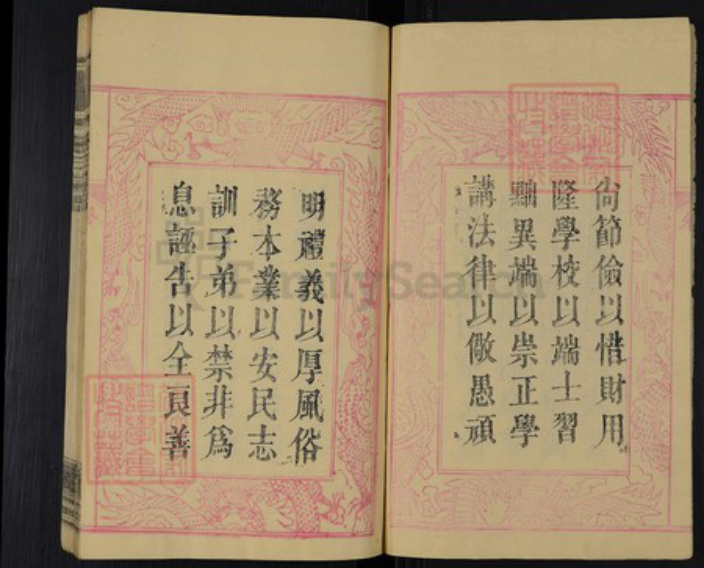 尙節儉以惜財用
隆學校以端士習
黜異端以崇正學
講法律以儆愚頑
明禮義以厚風俗
務本業以安民志
訓子弟以禁非爲
息誣告以全良善
FamilySearch